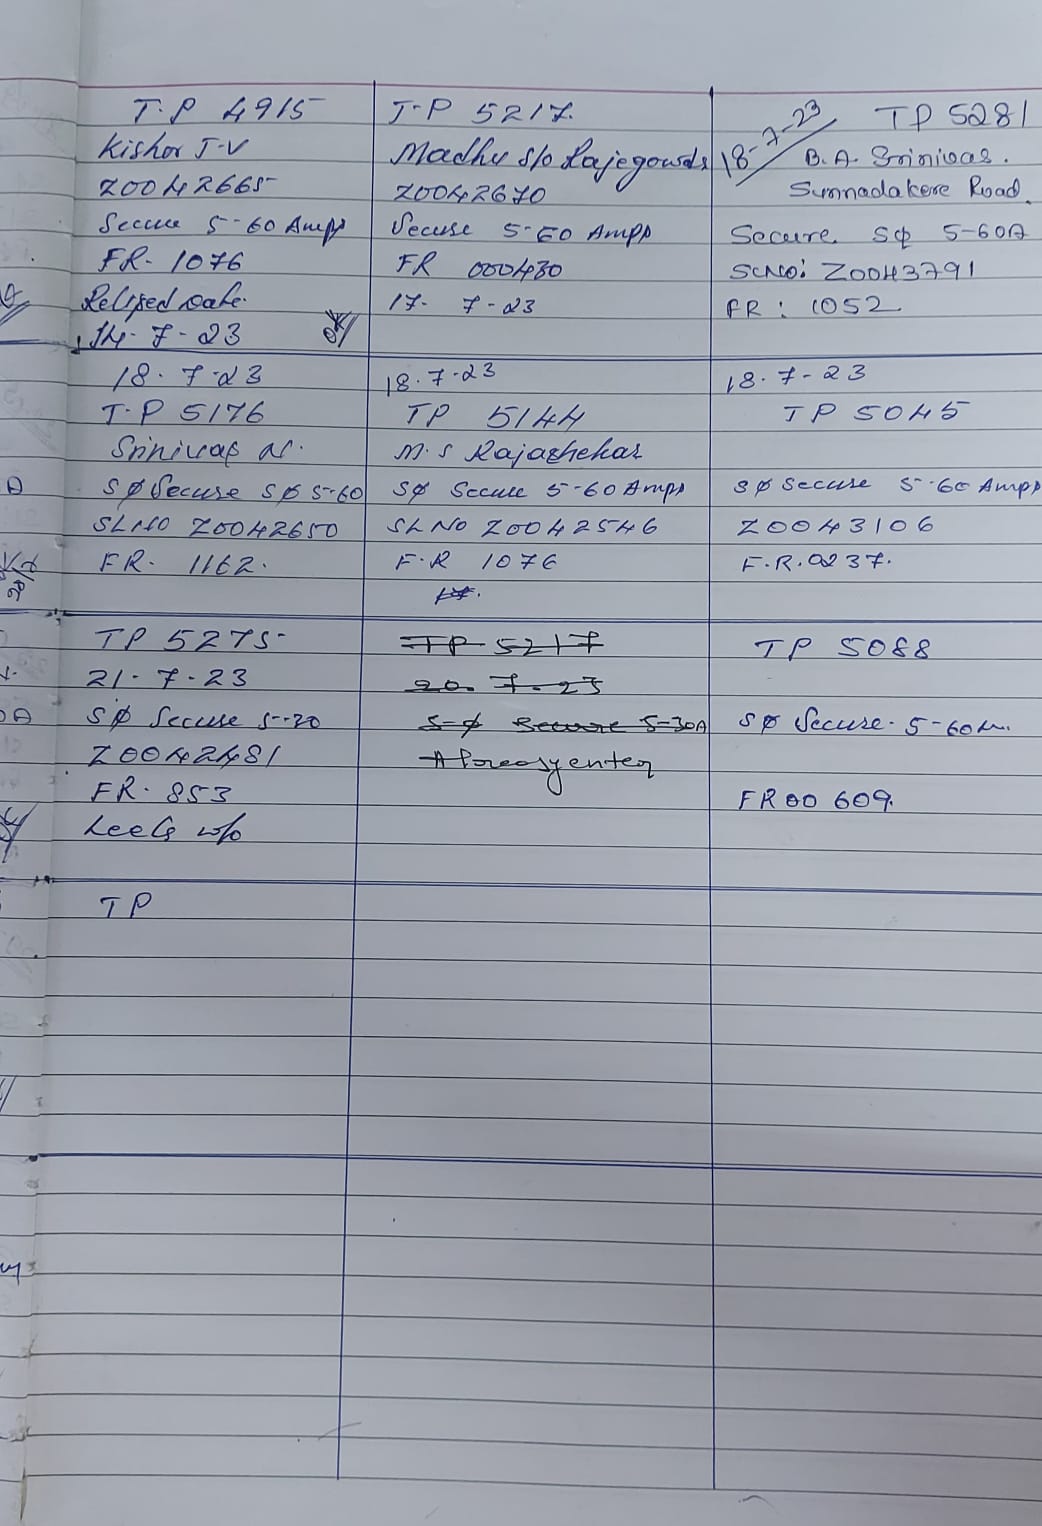 T.P 4915
Kishor J-V
Z0042665
Secure 5-60 Amps
FR- 1076
Date.
14-7-23
J-P 5217.
Madhu S/o Rajegowda
Z0042670
Secuse 5-60 Amps
FR 000430
17- 7-23
18-7-23 TP 5281
B.A. Srinivas.
Sunnadakere Road.
Secure. Sφ 5-60A
SLNO: Z0043791
FR: 1052
18.7-23
T.P 5176
Srinivas
Sφ Secuse Sφ 5-60
SLNO Z0042650
FR. 1162.
18.7-23
TP 5144
M.S Rajashekar
Sφ Secuse 5-60 Amps
SLNO Z0042546
F.R 1076
17.
18.7-23
TP 5045
Sφ Secuse 5-60 Amps
Z0043106
F.R.0237.
TP 5275
21-7-23
Sφ Secuse 5-20
Z0042481
FR. 853
w/o
TP 5217
20.7-23
S-φ Secure 5-30A
TP 5088
Sφ Secuse. 5-60
FR00 609.
TP